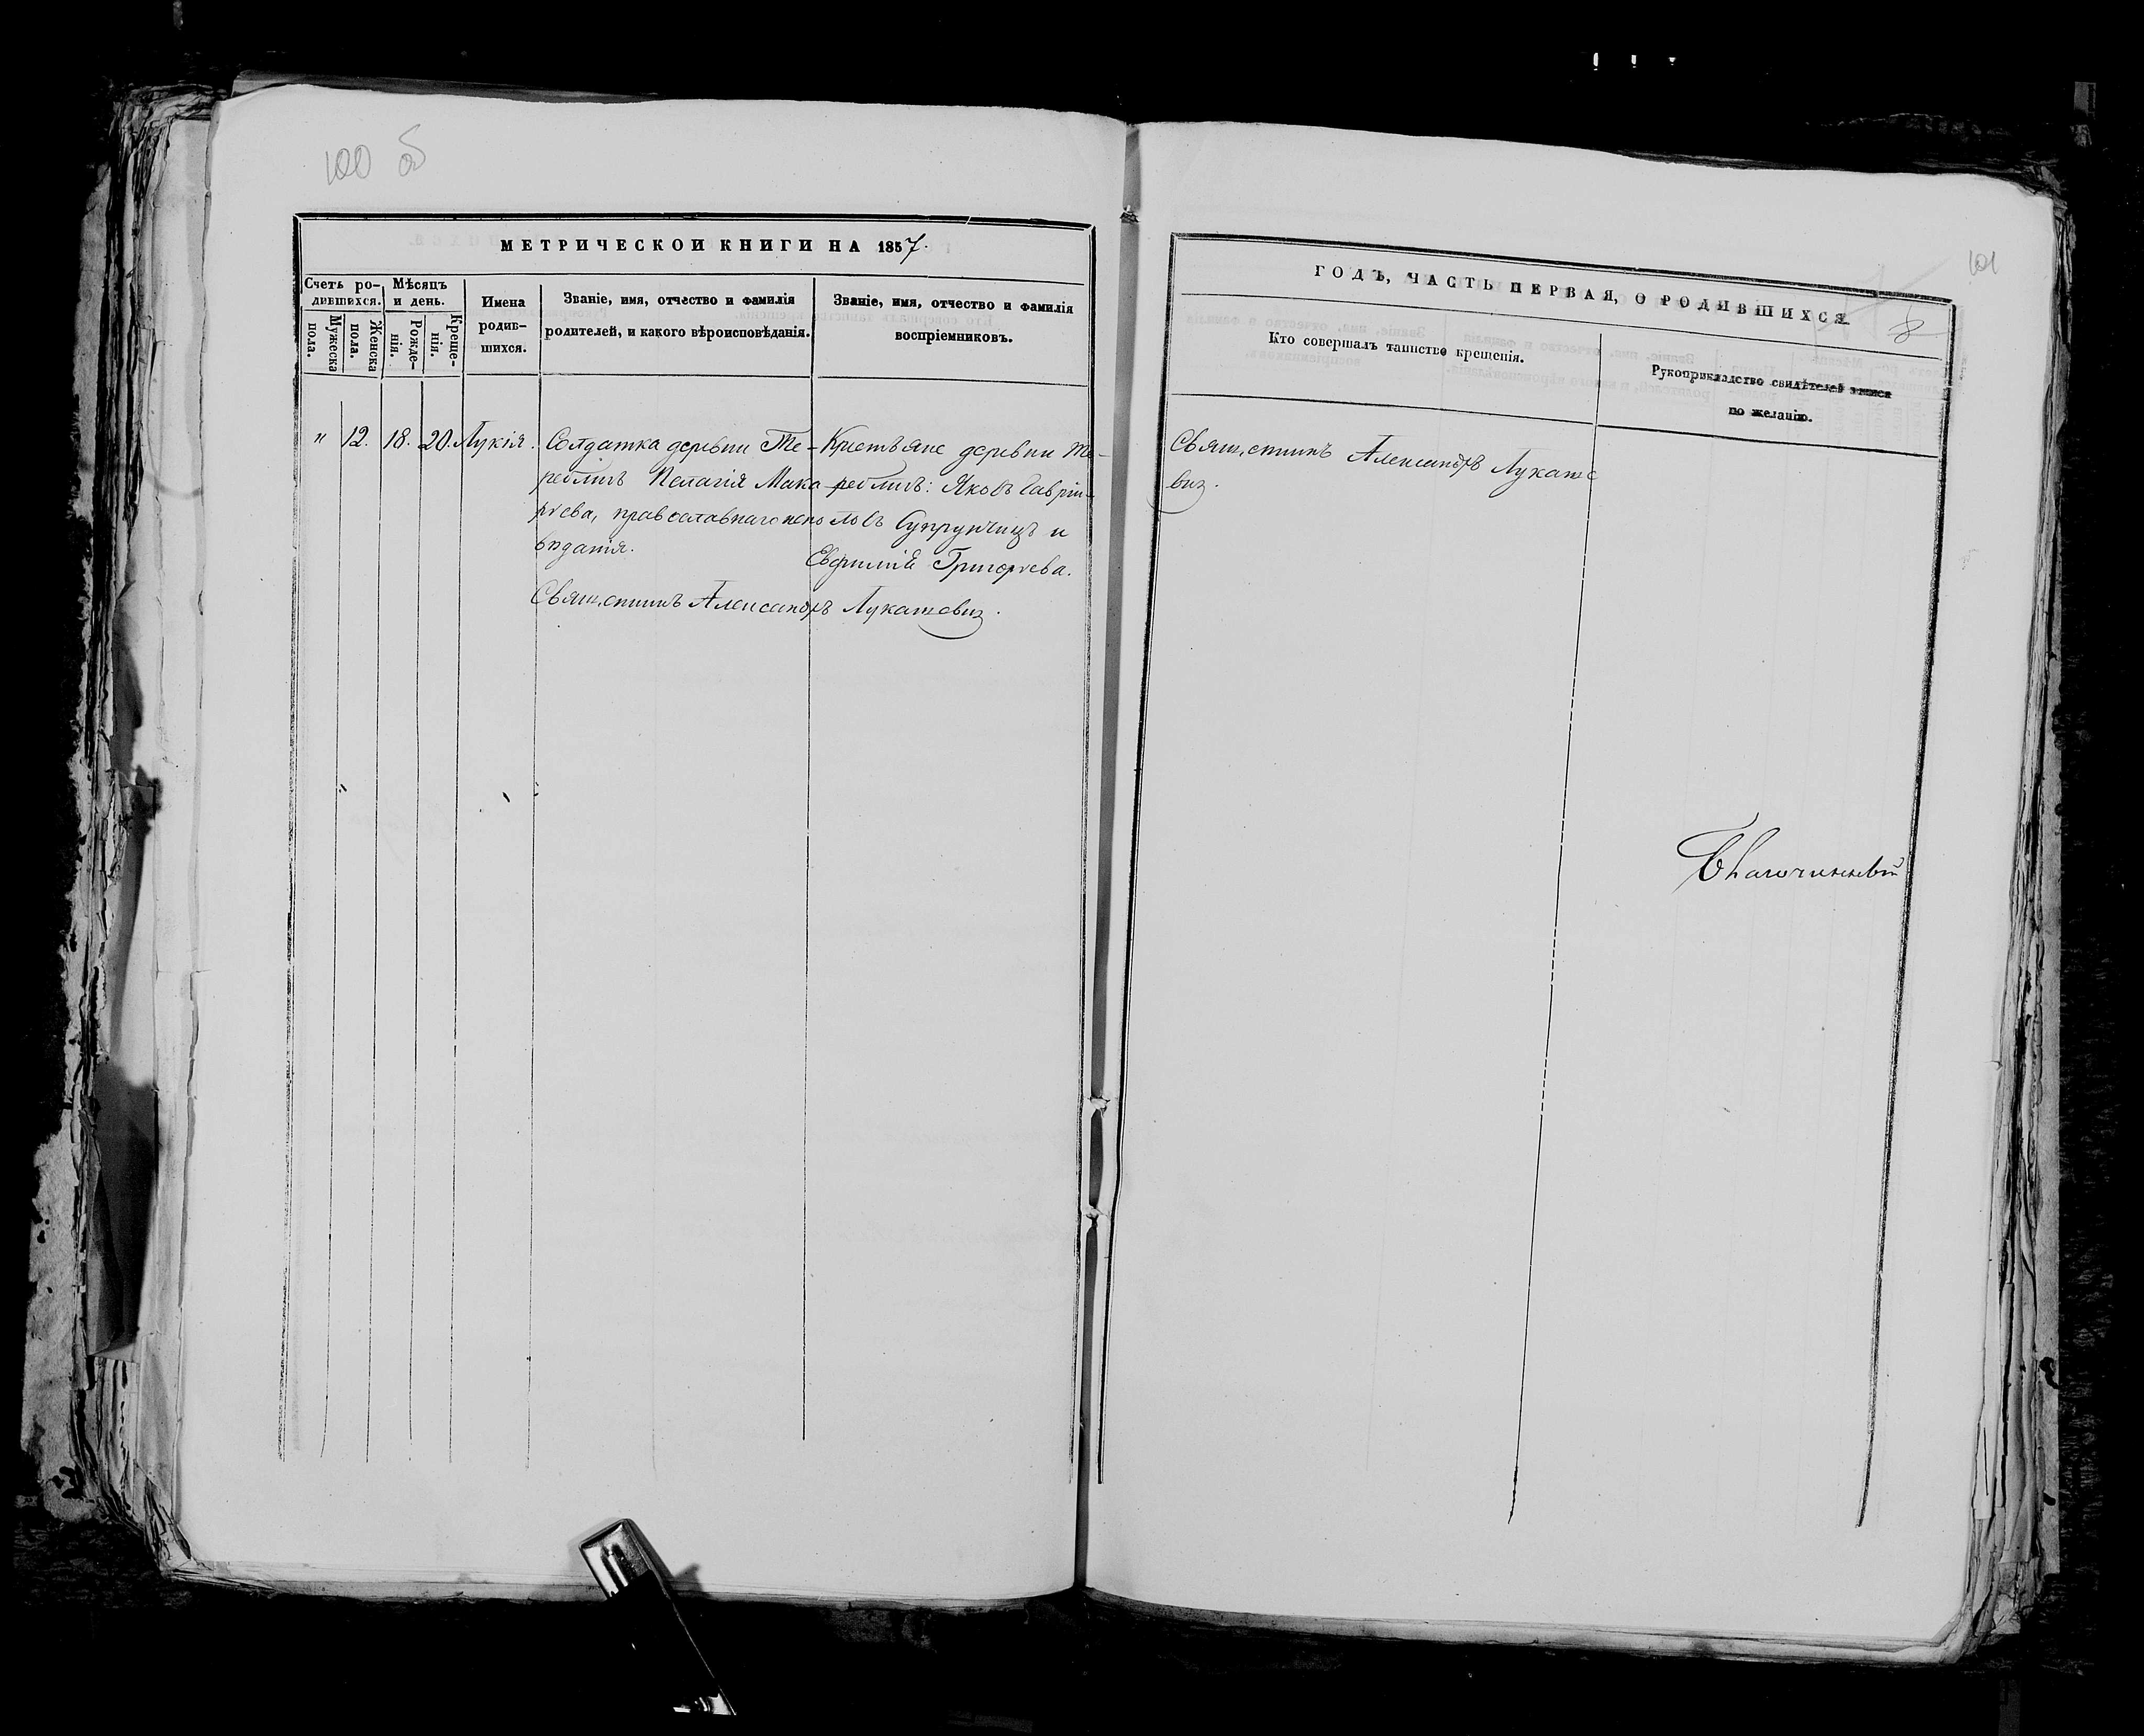 100 об
МЕТРИЧЕСКОЙ КНИГИ НА 1857.
Счетъ ро-
дившихся.
Мужеска
пола.
Женска
пола.
Мѣсяцъ
и день.
Рожде-
нія.
Креще-
нія.
Имена
родив-
шихся.
Званіе, имя, отчество и фамилія
родителей, и какого вѣроисповѣданія.
Званіе, имя, отчество и фамилія
воспріемниковъ.
" 12. 18. 20. Лукія.
Солдатка деревни Те-
реблич Пелагія Мака
рѵева, православнаго испо
вѣданія.
Крестьяне деревни Те-
реблич: Яковъ Гавріи-
ловъ Супрунчицъ и
Евфимія Григорѵева.
Священникъ Александръ Лукашевич.
101
ГОДЪ, ЧАСТЬ ПЕРВАЯ, О РОДИВШИХСЯ
8
Кто совершалъ таинство крещенія.
Рукоприкладство свидѣтелей записи
по желанію.
Священникъ Александръ Лукаше
вич.
Благочинный